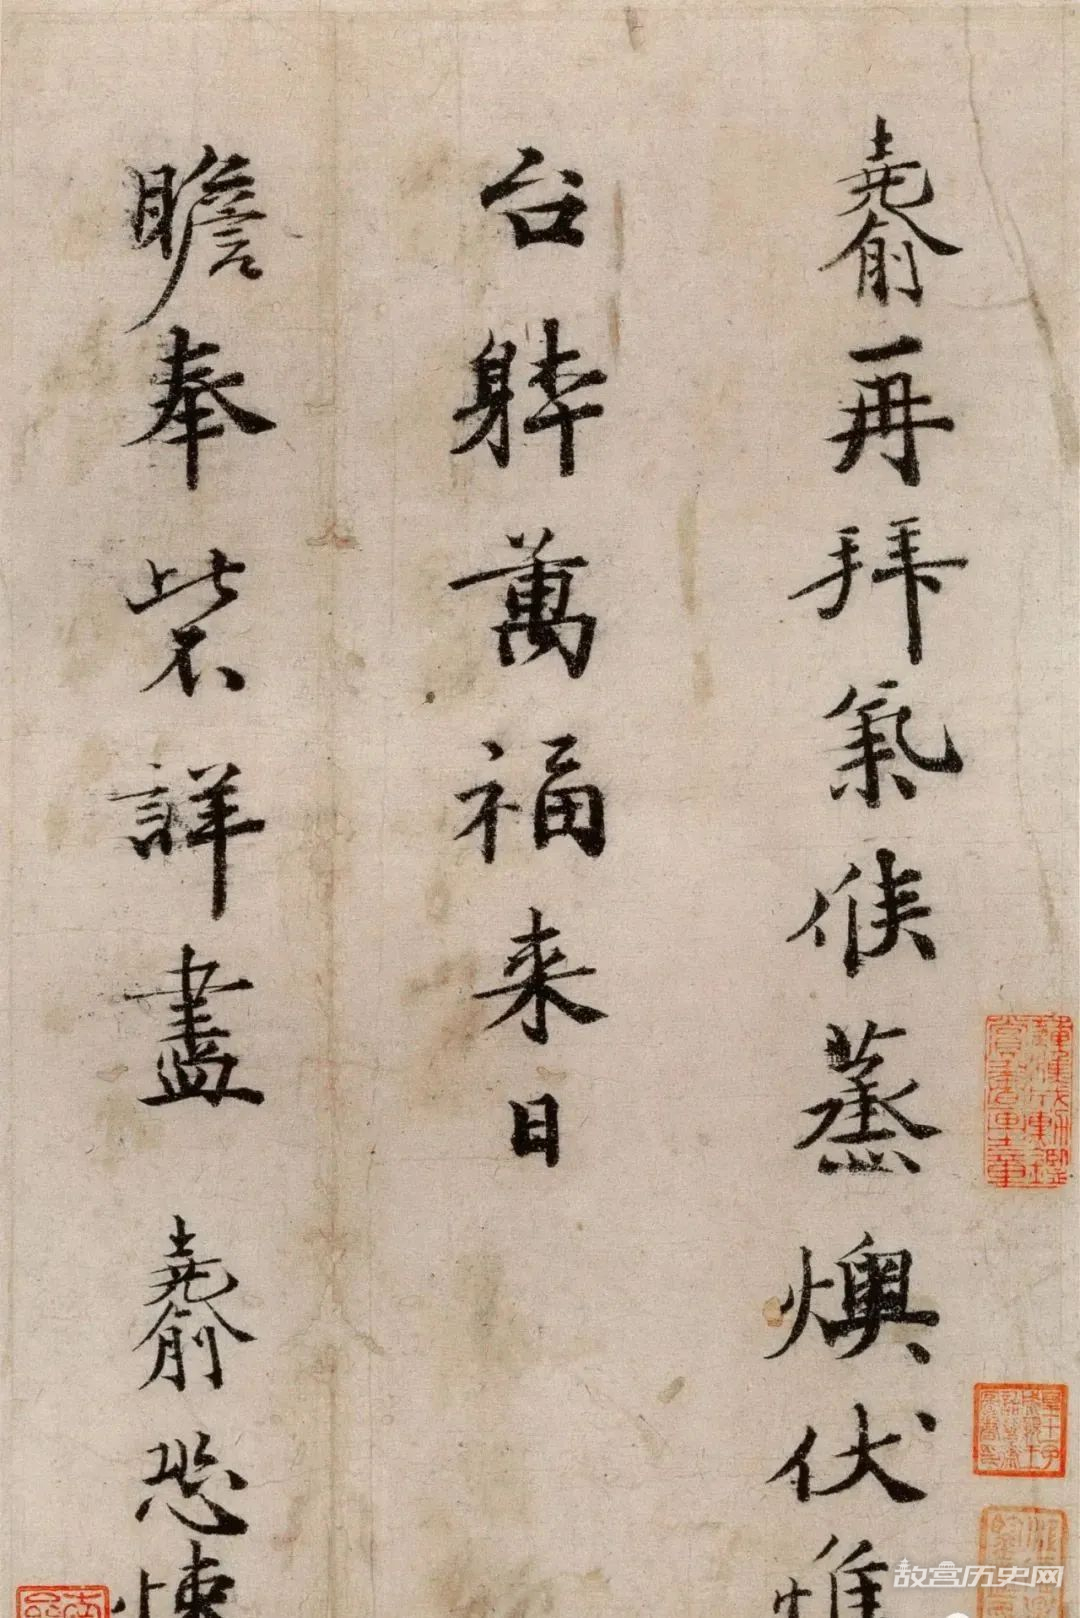 堯俞再拜氣候蒸燠伏惟
台躰萬福来日
瞻奉柴詳盡 堯俞恐悚
故宫历史网